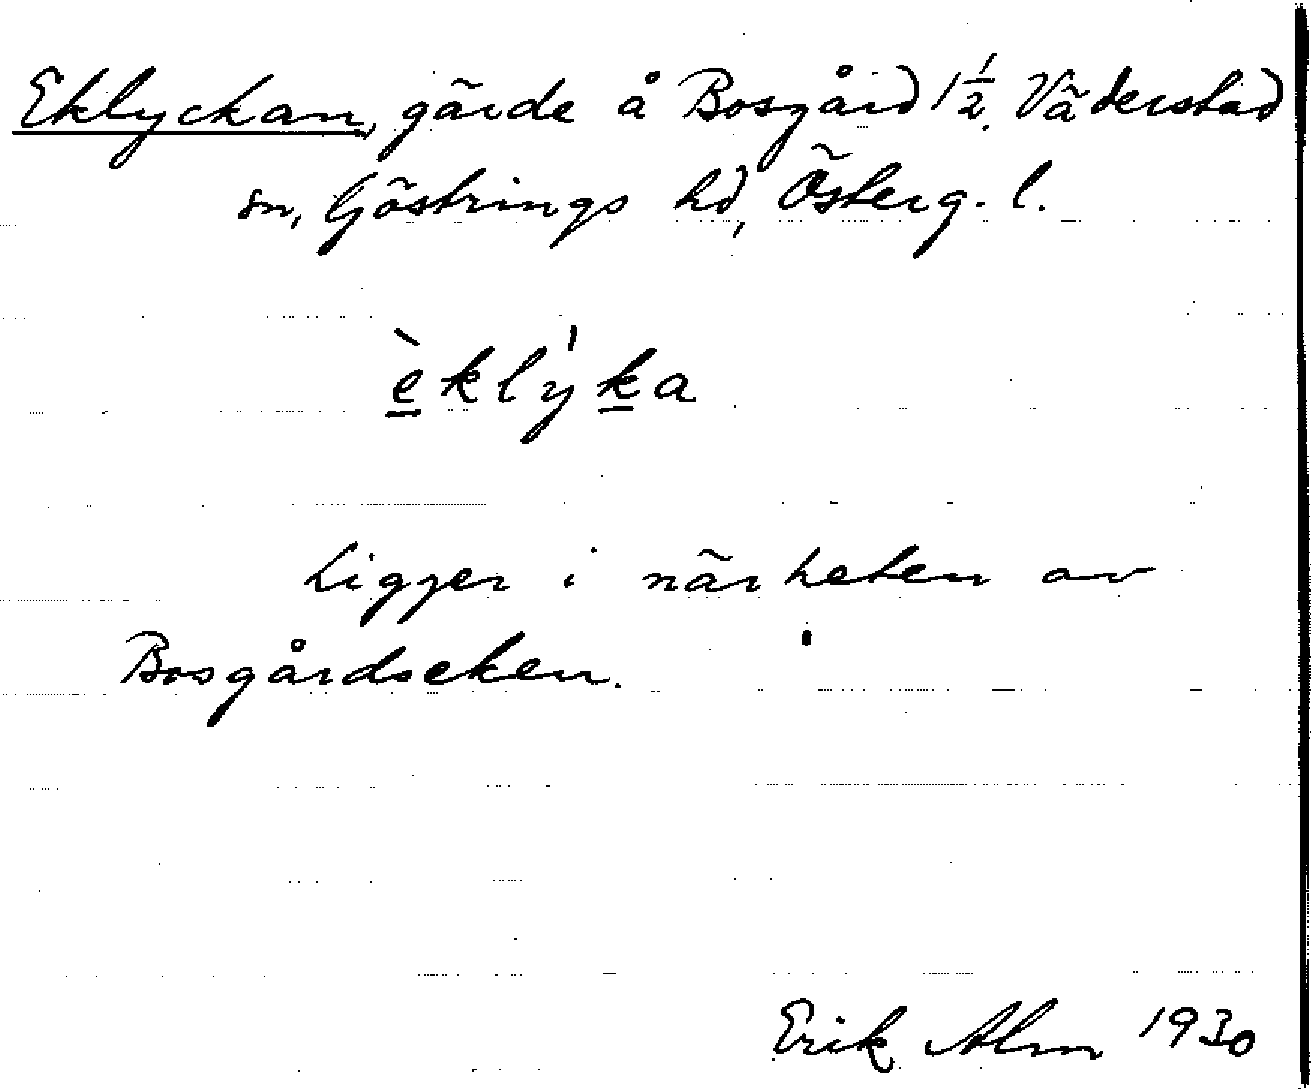 Eklyckan, gärde å Bosgård 1 1/2. Väderstad
sn, Göstrings hd, Österg. l.
èklýka
Ligger i närheten av
Bosgårdseken.
Erik Alm 1930